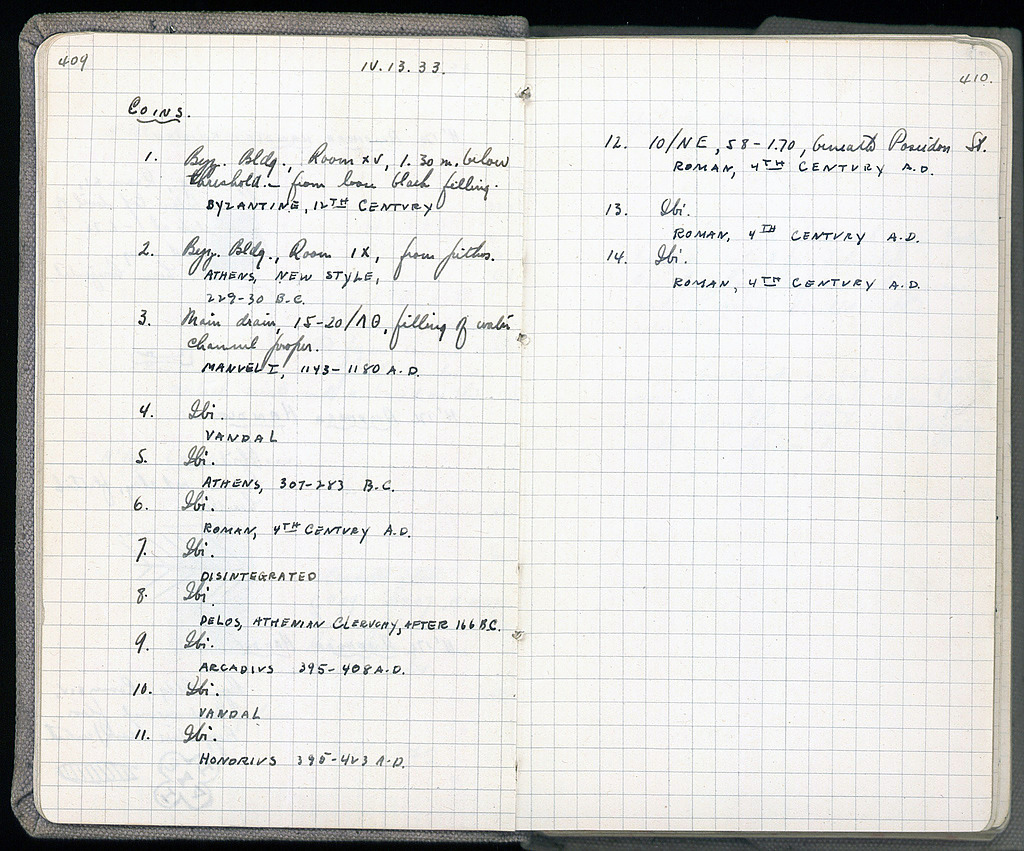 409
IV.13.33.
COINS.
1. Byz. Bldg., Room XV, 1.30 m. below
threshold – from loose black filling.
BYZANTINE, 12TH CENTURY
2. Byz. Bldg., Room IX, from pithos.
ATHENS, NEW STYLE,
229-30 B.C.
3. Main drain, 15-20/ΛΘ, filling of water
channel proper.
MANVEL I, 1143-1180 A.D.
4. Ibi.
VANDAL
5. Ibi.
ATHENS, 307-283 B.C.
6. Ibi.
ROMAN, 4TH CENTVRY A.D.
7. Ibi.
DISINTEGRATED
8. Ibi.
DELOS, ATHENIAN CLERVCHY, AFTER 166 B.C.
9. Ibi.
ARCADIVS 395-408 A.D.
10. Ibi.
VANDAL
11. Ibi.
HONORIVS 395-423 A.D.
410.
12. 10/NE, 58-1.70, beneath Poseidon St.
ROMAN, 4TH CENTVRY A.D.
13. Ibi.
ROMAN, 4TH CENTVRY A.D.
14. Ibi.
ROMAN, 4TH CENTVRY A.D.